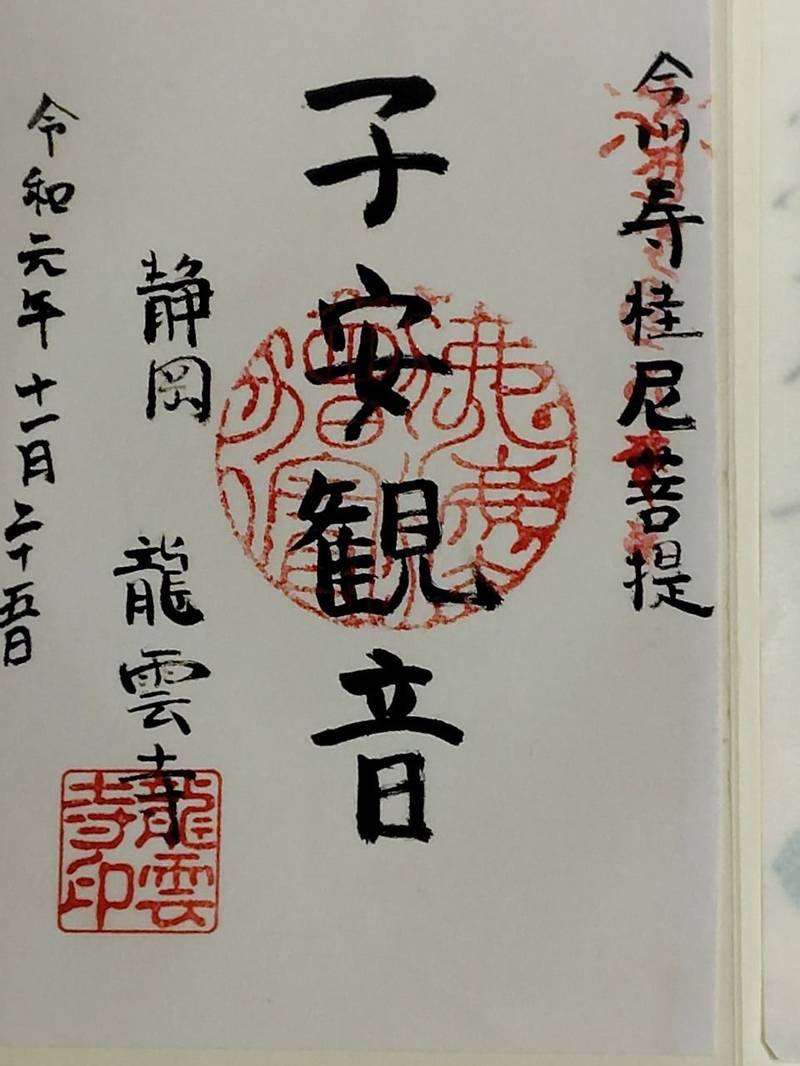 今川寿桂尼菩提
子安観音
静岡 龍雲寺
令和元年十一月二十五日
龍雲寺印